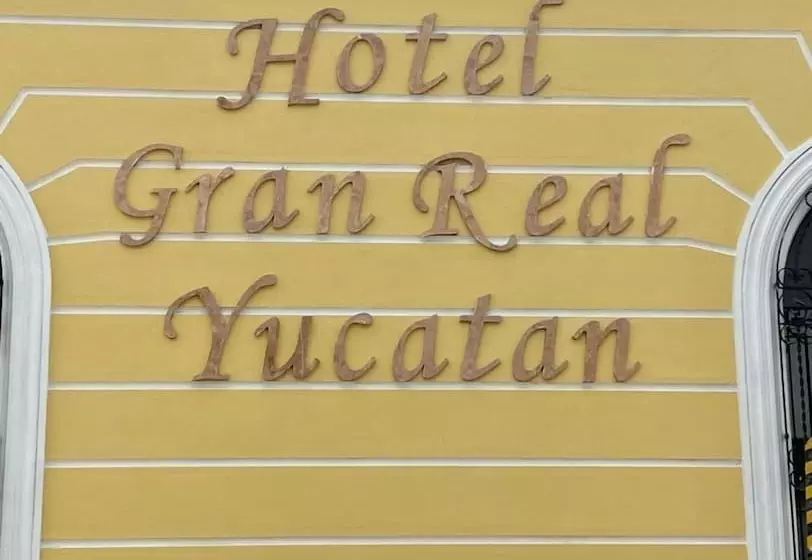 Hotel
Gran Real
Yucatan